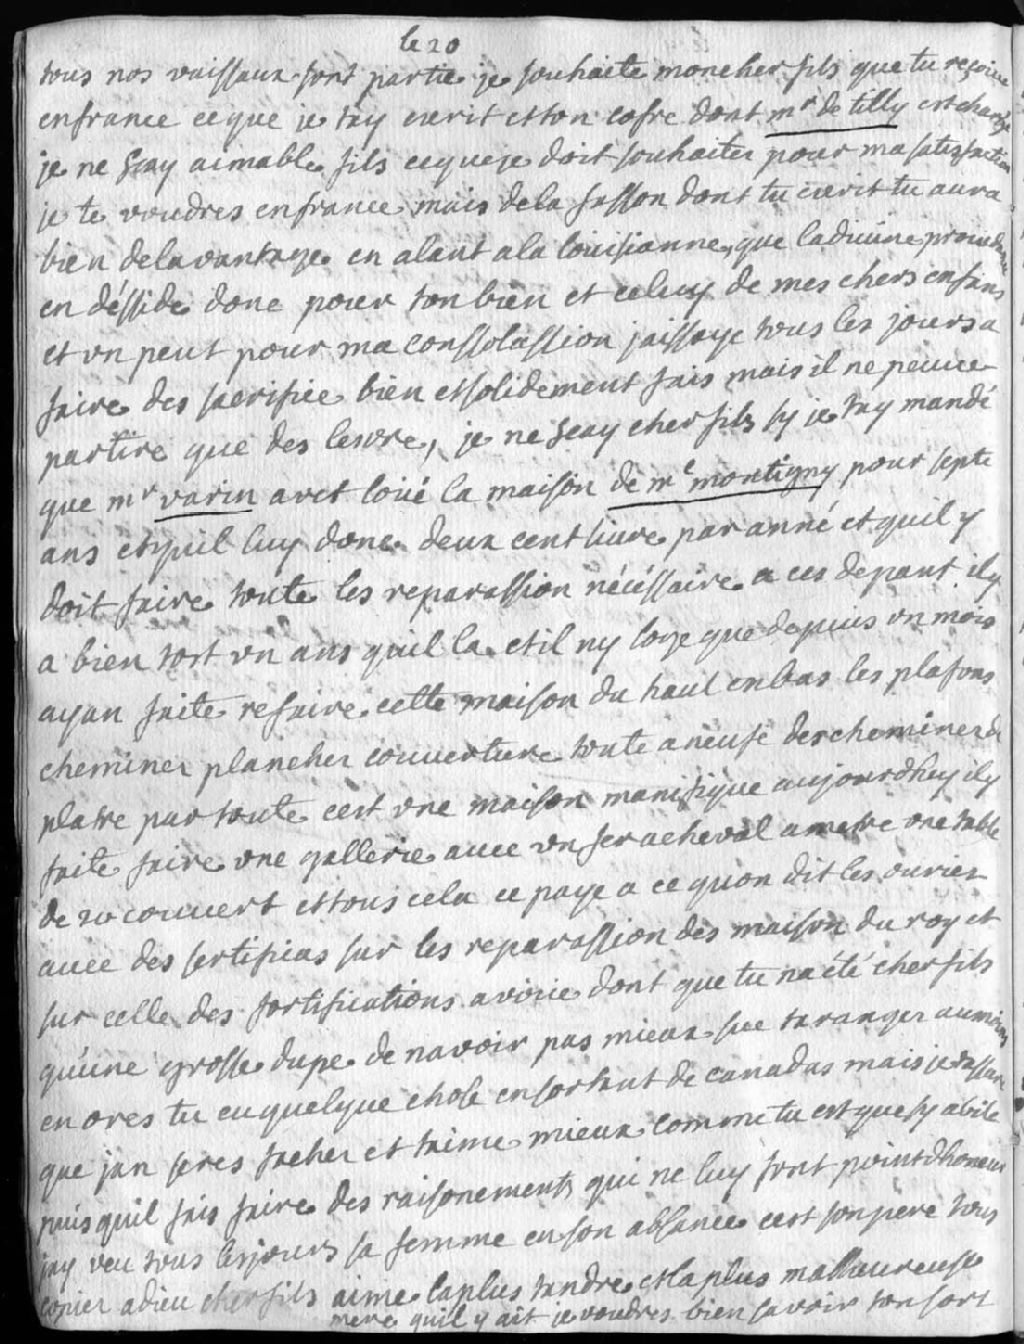 le 20
tous nos vaissaux sont partie je souhaite mon cher fils que tu reçoive
enfrance ce que je tay ecrit et ton cofre dont mr de tilly est chargé
je ne scay aimable fils ceque je doit souhaiter pour ma satisfaction
je te voudres enfrance mais dela fasson dont tu ecrit tu aura
bien delavantage en alant ala louisianne, que ladivine providence
en désside donc pour ton bien et celuy de mes chers enfans
et un peut pour ma conssolassion jaissaye tous les jours a
faire des sacrifice bien et solidement fais mais il ne peuve
partire que des levre, je ne scay cher fils sy je tay mandé
que mr varin avet loüé la maison de me montigny pour septe
ans et quil luy done deux cent livre par anné et quil y
doit faire toute les reparassion nécéssaire a ces depant il y
a bien tost un ans quil la et il ny loge que depuis un mois
ayan faite refaire cette maison du haut enbas les plafons
cheminer plancher couverture toute aneufe des cheminer de
platre par toute cest une maison manifique aujourdhuy il y
faite faire une gallerie avec un fer acheval a metre une table
de 20 couvert et tous cela ce paye a ce quon dit les ouvrier
avec des sertificas sur les reparassion des maison du roy et
sur celle des fortifications avoüe dont que tu na été cher fils
quune grosse dupe de navoir pas mieux sue taranger aumoins
en ores tu eu quelque chose en sortant de canadas mais je tassure
que jan seres facher et taime mieux comme tu est que sy abile
puis quil fais faire des raisonements qui ne luy font point dhoneur
jay veu tous les jours sa femme en son absance cest son pere tous
copier adieu cher fils aime la plus tandre et la plus malheureuse
mere quil y ait je voudres bien savoir ton sort